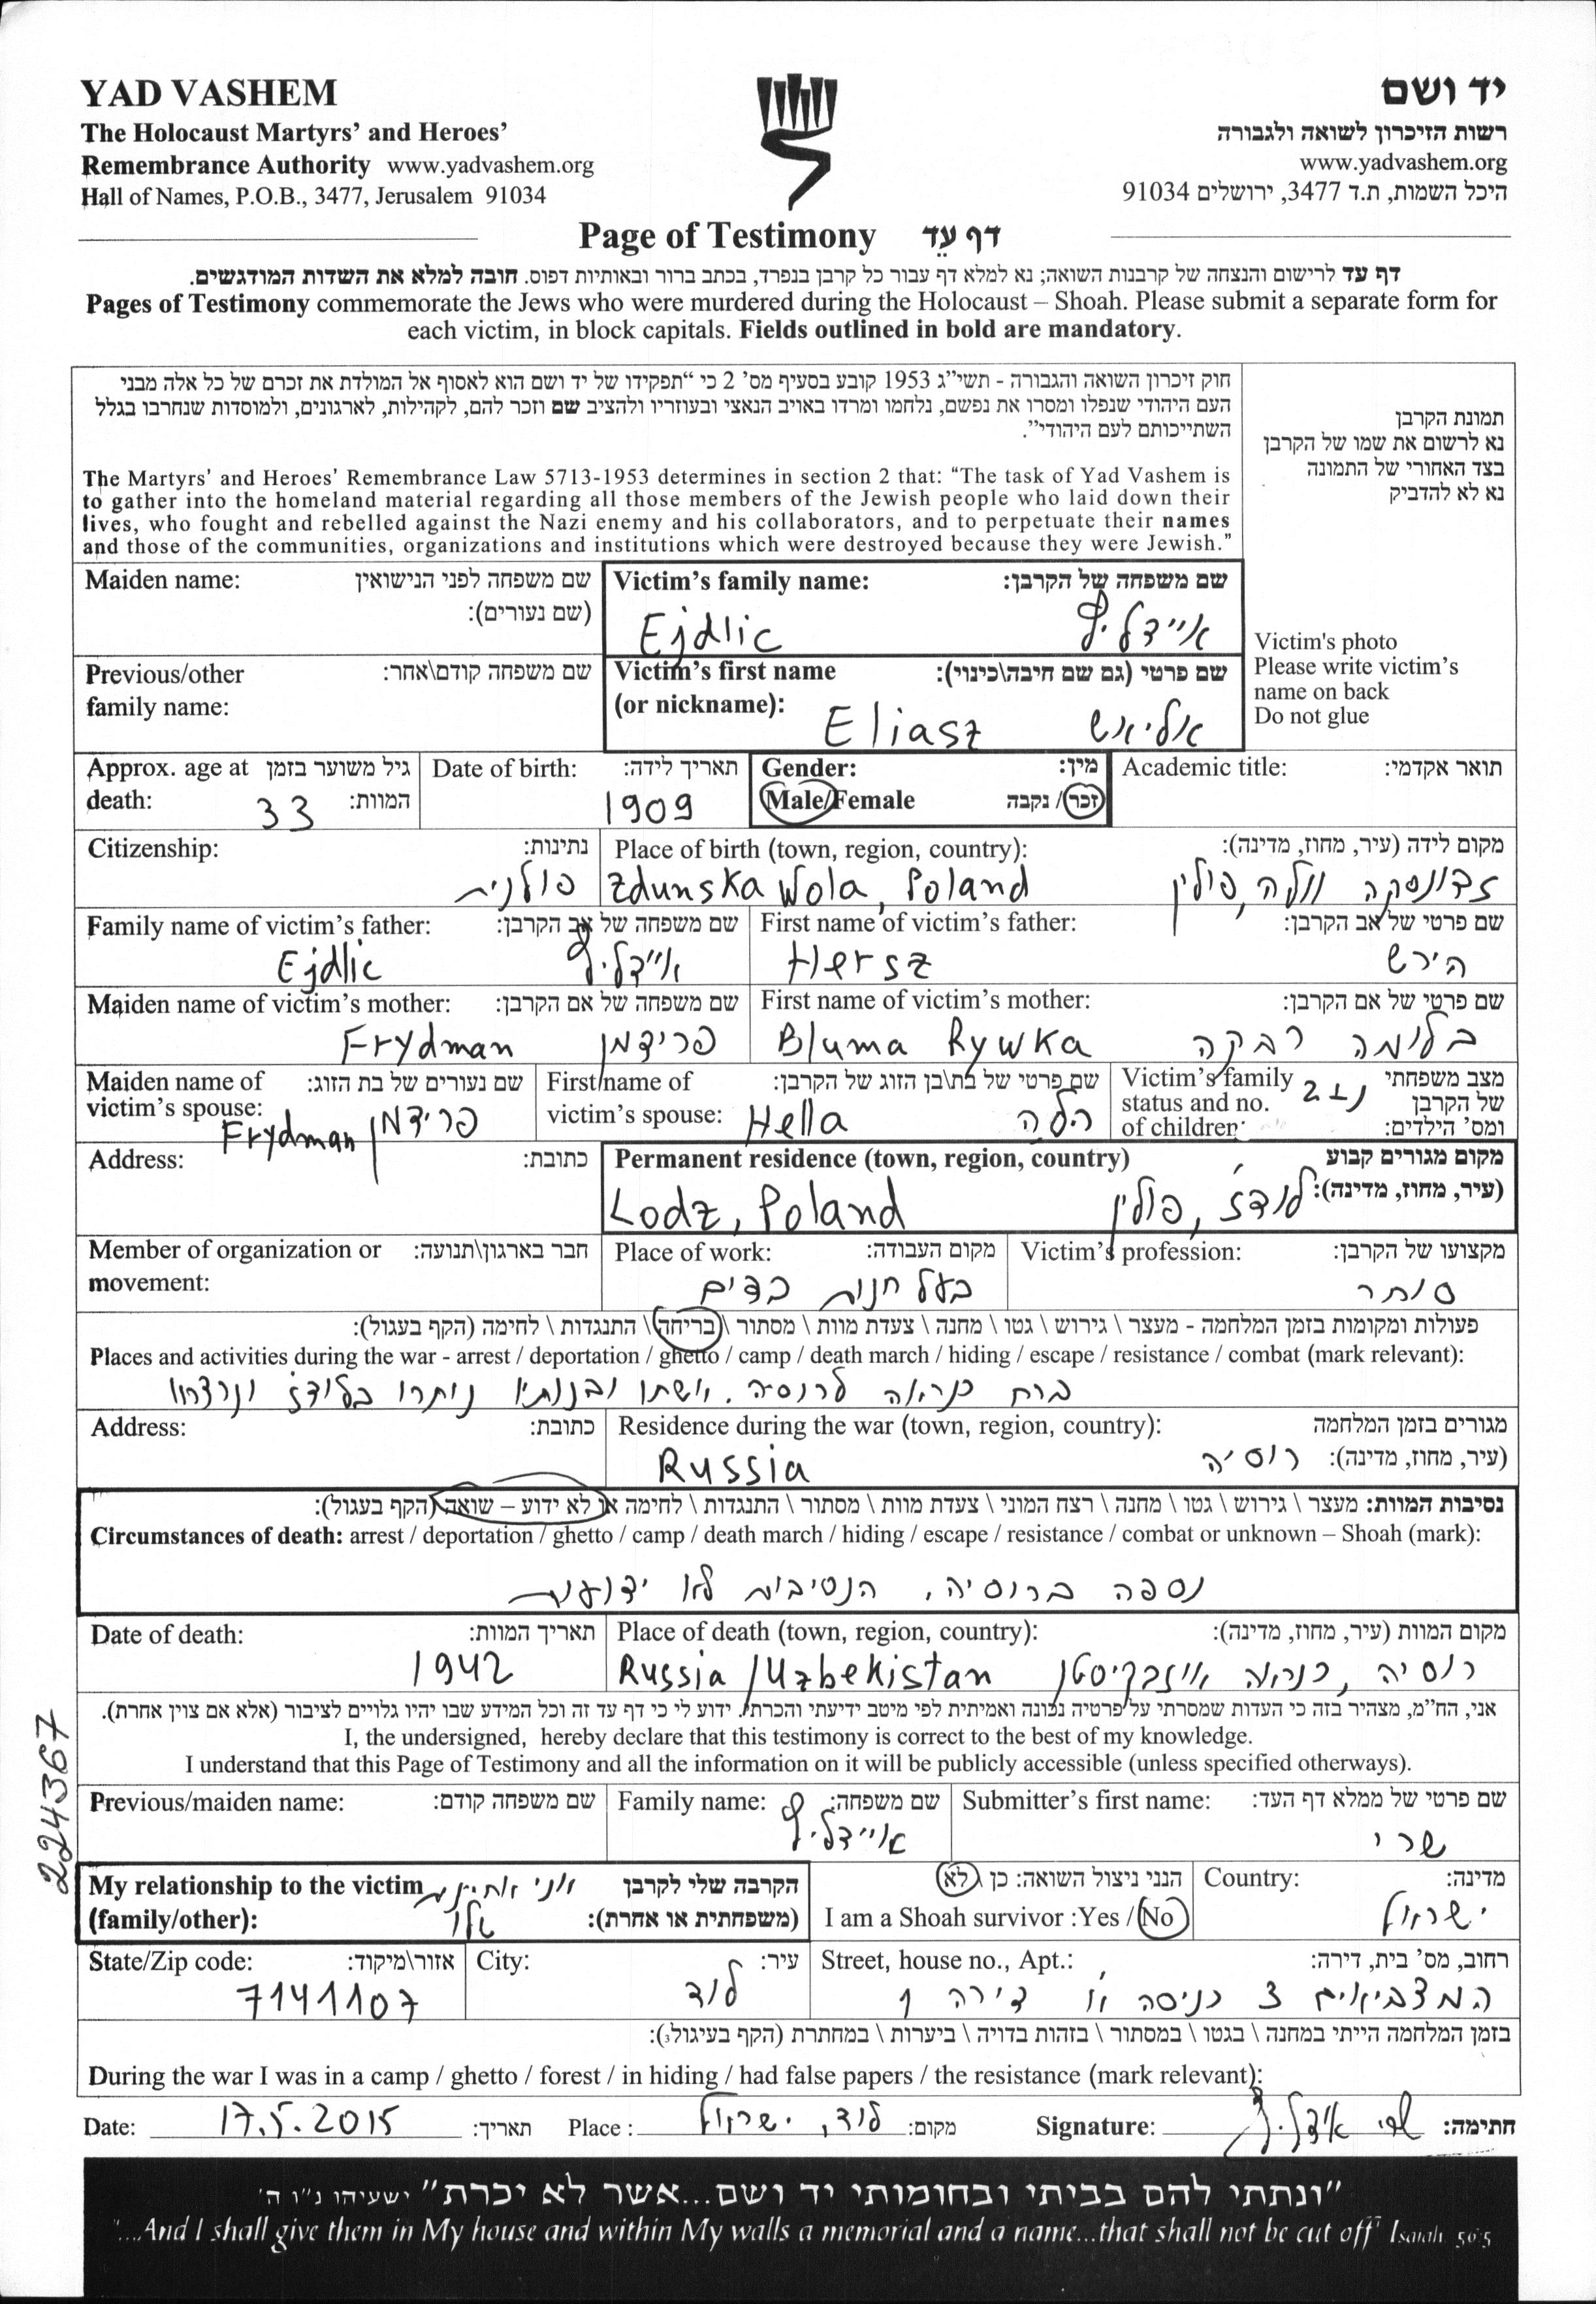 YAD VASHEM
The Holocaust Martyrs’ and Heroes’
Remembrance Authority www.yadvashem.org
Hall of Names, P.O.B., 3477, Jerusalem 91034
יד ושם
רשות הזיכרון לשואה ולגבורה
www.yadvashem.org
היכל השמות, ת.ד 3477, ירושלים 91034
Page of Testimony דף עֵד
דף עד לרישום והנצחה של קרבנות השואה; נא למלא דף עבור כל קרבן בנפרד, בכתב ברור ובאותיות דפוס. חובה למלא את השדות המודגשים.
Pages of Testimony commemorate the Jews who were murdered during the Holocaust – Shoah. Please submit a separate form for
each victim, in block capitals. Fields outlined in bold are mandatory.
חוק זיכרון השואה והגבורה - תשי"ג 1953 קובע בסעיף מס' 2 כי “תפקידו של יד ושם הוא לאסוף אל המולדת את זכרם של כל אלה מבני
העם היהודי שנפלו ומסרו את נפשם, נלחמו ומרדו באויב הנאצי ובעוזריו ולהציב שם וזכר להם, לקהילות, לארגונים, ולמוסדות שנחרבו בגלל
השתייכותם לעם היהודי”.
The Martyrs’ and Heroes’ Remembrance Law 5713-1953 determines in section 2 that: “The task of Yad Vashem is
to gather into the homeland material regarding all those members of the Jewish people who laid down their
lives, who fought and rebelled against the Nazi enemy and his collaborators, and to perpetuate their names
and those of the communities, organizations and institutions which were destroyed because they were Jewish.”
תמונת הקרבן
נא לרשום את שמו של הקרבן
בצד האחורי של התמונה
נא לא להדביק
Victim's photo
Please write victim’s
name on back
Do not glue
Maiden name: שם משפחה לפני הנישואין
(שם נעורים):
Victim’s family name: שם משפחה של הקרבן:
Ejdlic אײדליץ
Previous/other שם משפחה קודם\אחר:
family name:
Victim’s first name שם פרטי (גם שם חיבה\כינוי):
(or nickname): Eliasz אליאש
Approx. age at גיל משוער בזמן
death: 33 המוות:
Date of birth: תאריך לידה:
1909
Gender: מין:
Male/Female זכר / נקבה
Academic title: תואר אקדמי:
Citizenship: נתינות:
פולנית
Place of birth (town, region, country): מקום לידה (עיר, מחוז, מדינה):
Zdunska Wola, Poland זדונסקה וולה, פולין
Family name of victim’s father: שם משפחה של אב הקרבן:
Ejdlic אײדליץ
First name of victim’s father: שם פרטי של אב הקרבן:
Hersz הירש
Maiden name of victim’s mother: שם משפחה של אם הקרבן:
Frydman פרידמן
First name of victim’s mother: שם פרטי של אם הקרבן:
Bluma Rywka בלומה רבקה
Maiden name of שם נעורים של בת הזוג:
victim’s spouse: Frydman פרידמן
First name of שם פרטי של בת\בן הזוג של הקרבן:
victim’s spouse: Hella הלה
Victim’s family מצב משפחתי
status and no. נ+2 של הקרבן
of children: ומס' הילדים:
Address: כתובת:
Permanent residence (town, region, country) מקום מגורים קבוע
(עיר, מחוז, מדינה):
Lodz, Poland לודז', פולין
Member of organization or חבר בארגון\תנועה:
movement:
Place of work: מקום העבודה:
בעל חנות בדים
Victim’s profession: מקצועו של הקרבן:
סוחר
פעולות ומקומות בזמן המלחמה - מעצר \ גירוש \ גטו \ מחנה \ צעדת מוות \ מסתור \ בריחה \ התנגדות \ לחימה (הקף בעגול):
Places and activities during the war - arrest / deportation / ghetto / camp / death march / hiding / escape / resistance / combat (mark relevant):
ברח כנראה לרוסיה. אשתו ובנותיו נותרו בלודז' ונרצחו
Address: כתובת:
Residence during the war (town, region, country): מגורים בזמן המלחמה
(עיר, מחוז, מדינה):
Russia רוסיה
נסיבות המוות: מעצר \ גירוש \ גטו \ מחנה \ רצח המוני \ צעדת מוות \ מסתור \ התנגדות \ לחימה או לא ידוע – שואה (הקף בעגול):
Circumstances of death: arrest / deportation / ghetto / camp / death march / hiding / escape / resistance / combat or unknown – Shoah (mark):
נספה ברוסיה, הנסיבות לא ידועות
Date of death: תאריך המוות:
1942
Place of death (town, region, country): מקום המוות (עיר, מחוז, מדינה):
Russia/Uzbekistan רוסיה, כנראה אוזבקיסטן
אני, הח"מ, מצהיר בזה כי העדות שמסרתי על פרטיה נכונה ואמיתית לפי מיטב ידיעתי והכרתי. ידוע לי כי דף עד זה וכל המידע שבו יהיו גלויים לציבור (אלא אם צוין אחרת).
I, the undersigned, hereby declare that this testimony is correct to the best of my knowledge.
I understand that this Page of Testimony and all the information on it will be publicly accessible (unless specified otherways).
224367
Previous/maiden name: שם משפחה קודם:
Family name: שם משפחה:
אײדליץ
Submitter’s first name: שם פרטי של ממלא דף העד:
שרי
My relationship to the victim הקרבה שלי לקרבן
(family/other): (משפחתית או אחרת):
אני אחיינית
שלו
הנני ניצול השואה: כן \ לא
I am a Shoah survivor :Yes / No
Country: מדינה:
ישראל
State/Zip code: אזור\מיקוד:
7141107
City: עיר:
לוד
Street, house no., Apt.: רחוב, מס' בית, דירה:
3 כניסה א' דירה 1
בזמן המלחמה הייתי במחנה \ בגטו \ במסתור \ בזהות בדויה \ ביערות \ במחתרת (הקף בעיגול):
During the war I was in a camp / ghetto / forest / in hiding / had false papers / the resistance (mark relevant):
Date: 17.5.2015 תאריך: Place : לוד, ישראל מקום: Signature: שרי אידליץ חתימה:
”ונתתי להם בביתי ובחומותי יד ושם...אשר לא יכרת” ישעיהו נ"ו ה'
"...And I shall give them in My house and within My walls a memorial and a name...that shall not be cut off" Isaiah 56:5